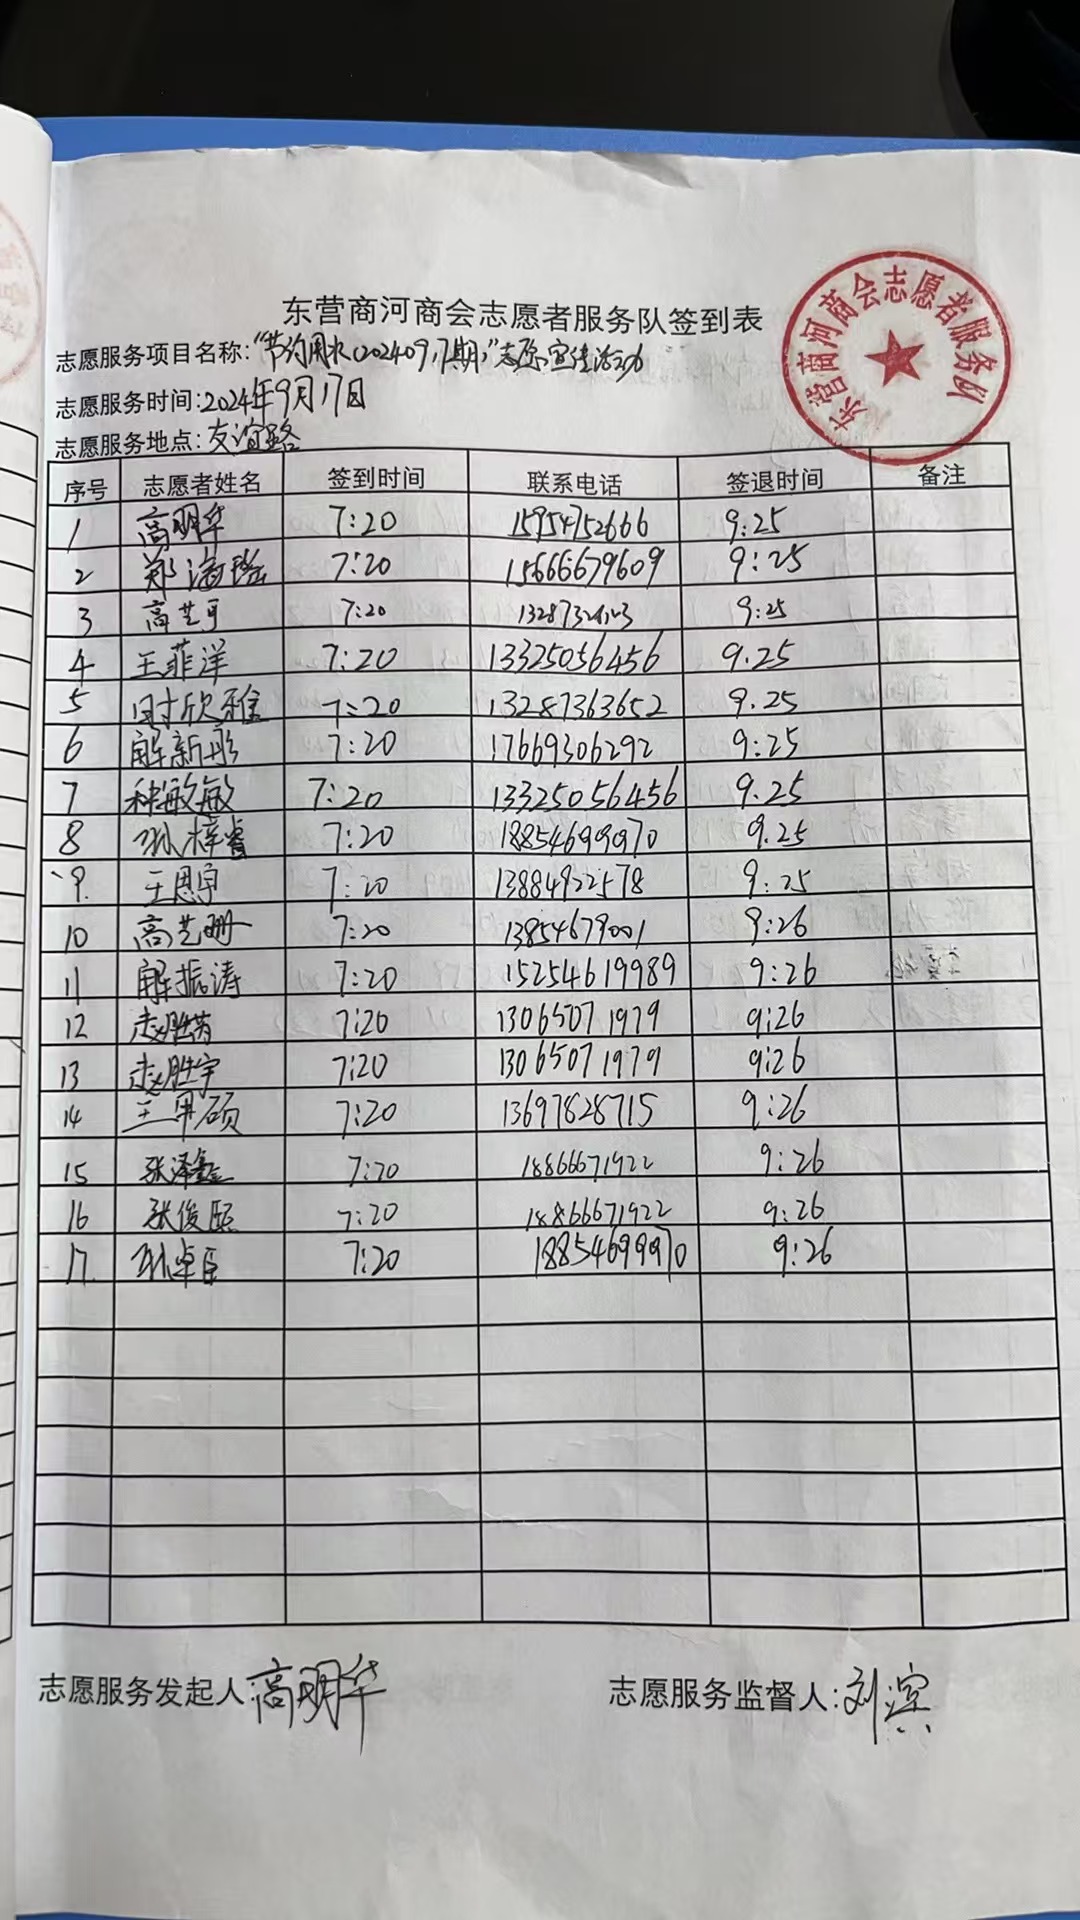 东营商河商会志愿者服务队签到表
东营商河商会志愿者服务队
志愿服务项目名称:“节约用水(202409.17期)”志愿宣传活动
志愿服务时间:2024年9月17日
志愿服务地点:友谊路
序号 志愿者姓名 签到时间 联系电话 签退时间 备注
1 高明华 7:20 15954752666 9:25
2 郑海瑶 7:20 15666679609 9:25
3 高艺可 7:20 9:25
4 王菲洋 7:20 13325056456 9.25
5 时欣雅 7:20 13287363652 9.25
6 解新彤 7:20 17669306292 9:25
7 种敏敏 7:20 13325056456 9.25
8 孙梓睿 7:20 18854699970 9.25
9. 王恩宇 7:20 13884922578 9:25
10 高艺珊 7:20 13854679001 9:26
11 解振涛 7:20 15254619989 9:26
12 赵胜男 7:20 13065071979 9:26
13 赵胜宇 7:20 13065071979 9:26
14 7:20 13697828715 9:26
15 张泽鑫 7:20 18866671922 9:26
16 张俊熙 7:20 18866671922 9:26
17 孙卓臣 7:20 18854699970 9:26
志愿服务发起人:高明华 志愿服务监督人:刘滨